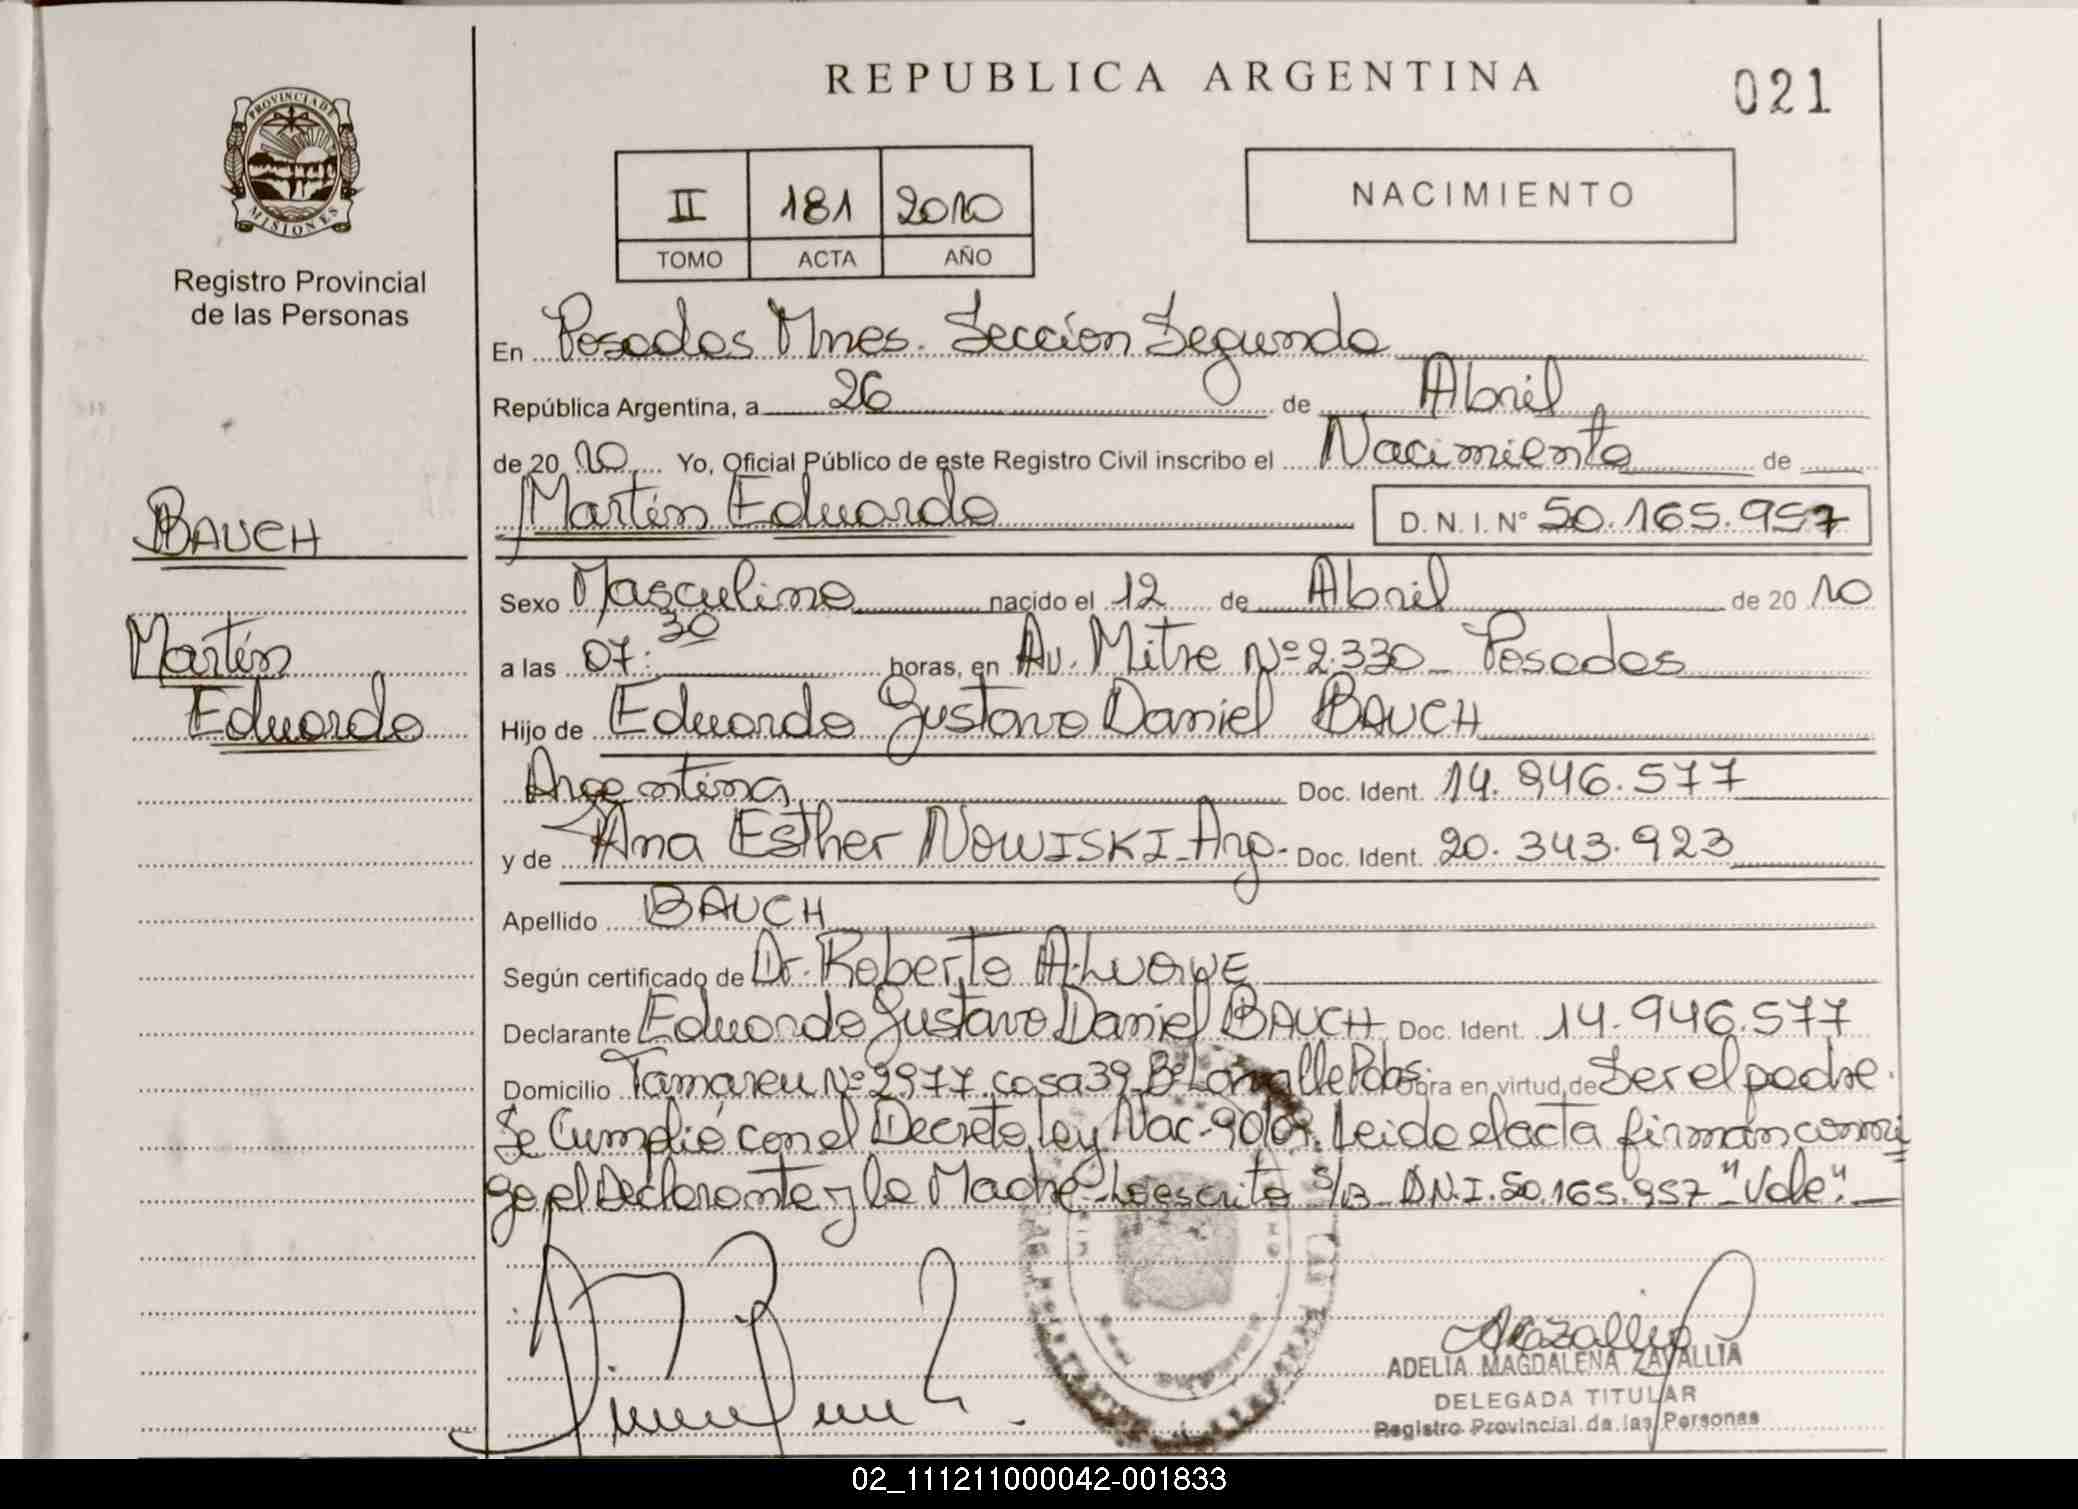 REPUBLICA ARGENTINA
021
PROVINCIA DE
MISIONES
Registro Provincial
de las Personas
II 181 2010
TOMO ACTA AÑO
NACIMIENTO
En Posadas Mnes. Sección Segunda
República Argentina, a 26 de Abril
de 2010 Yo, Oficial Público de este Registro Civil inscribo el Nacimiento de
Martín Eduardo D.N.I. Nº 50.165.957
BAUCH
Martín
Eduardo
Sexo Masculino nacido el 12 de Abril de 2010
a las 07:30 horas, en Av. Mitre Nº 2.330 - Posadas
Hijo de Eduardo Gustavo Daniel BAUCH
Argentina Doc. Ident. 14.946.577
y de Ana Esther NOWISKI - Arg. Doc. Ident. 20.343.923
Apellido BAUCH
Según certificado de Dr. Roberto A.
Declarante Eduardo Gustavo Daniel BAUCH Doc. Ident. 14.946.577
Domicilio Tamareu Nº 2977 casa 39 Bº Lavalle Pdas. Obra en virtud de Ser el padre.
Se Cumplió con el Decreto Ley Nac - 90/09. Leida el acta firman conmi
go el Declarante y la Madre - Lo escrito S/B - D.N.I. 50.165.957 "Vale".
ADELIA MAGDALENA ZAVALLIA
DELEGADA TITULAR
Registro Provincial de las Personas
02_111211000042-001833